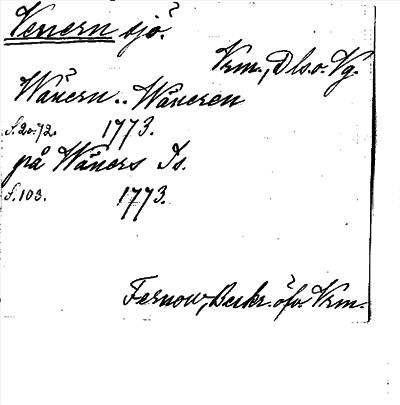 Venern sjö.
Vrm., Dls. o. Vg.
Wänern.. Wäneren
s. 20. 72. 1773.
på Wäners Is.
s. 103. 1773.
Fernow, Beskr. öfv. Vrm.